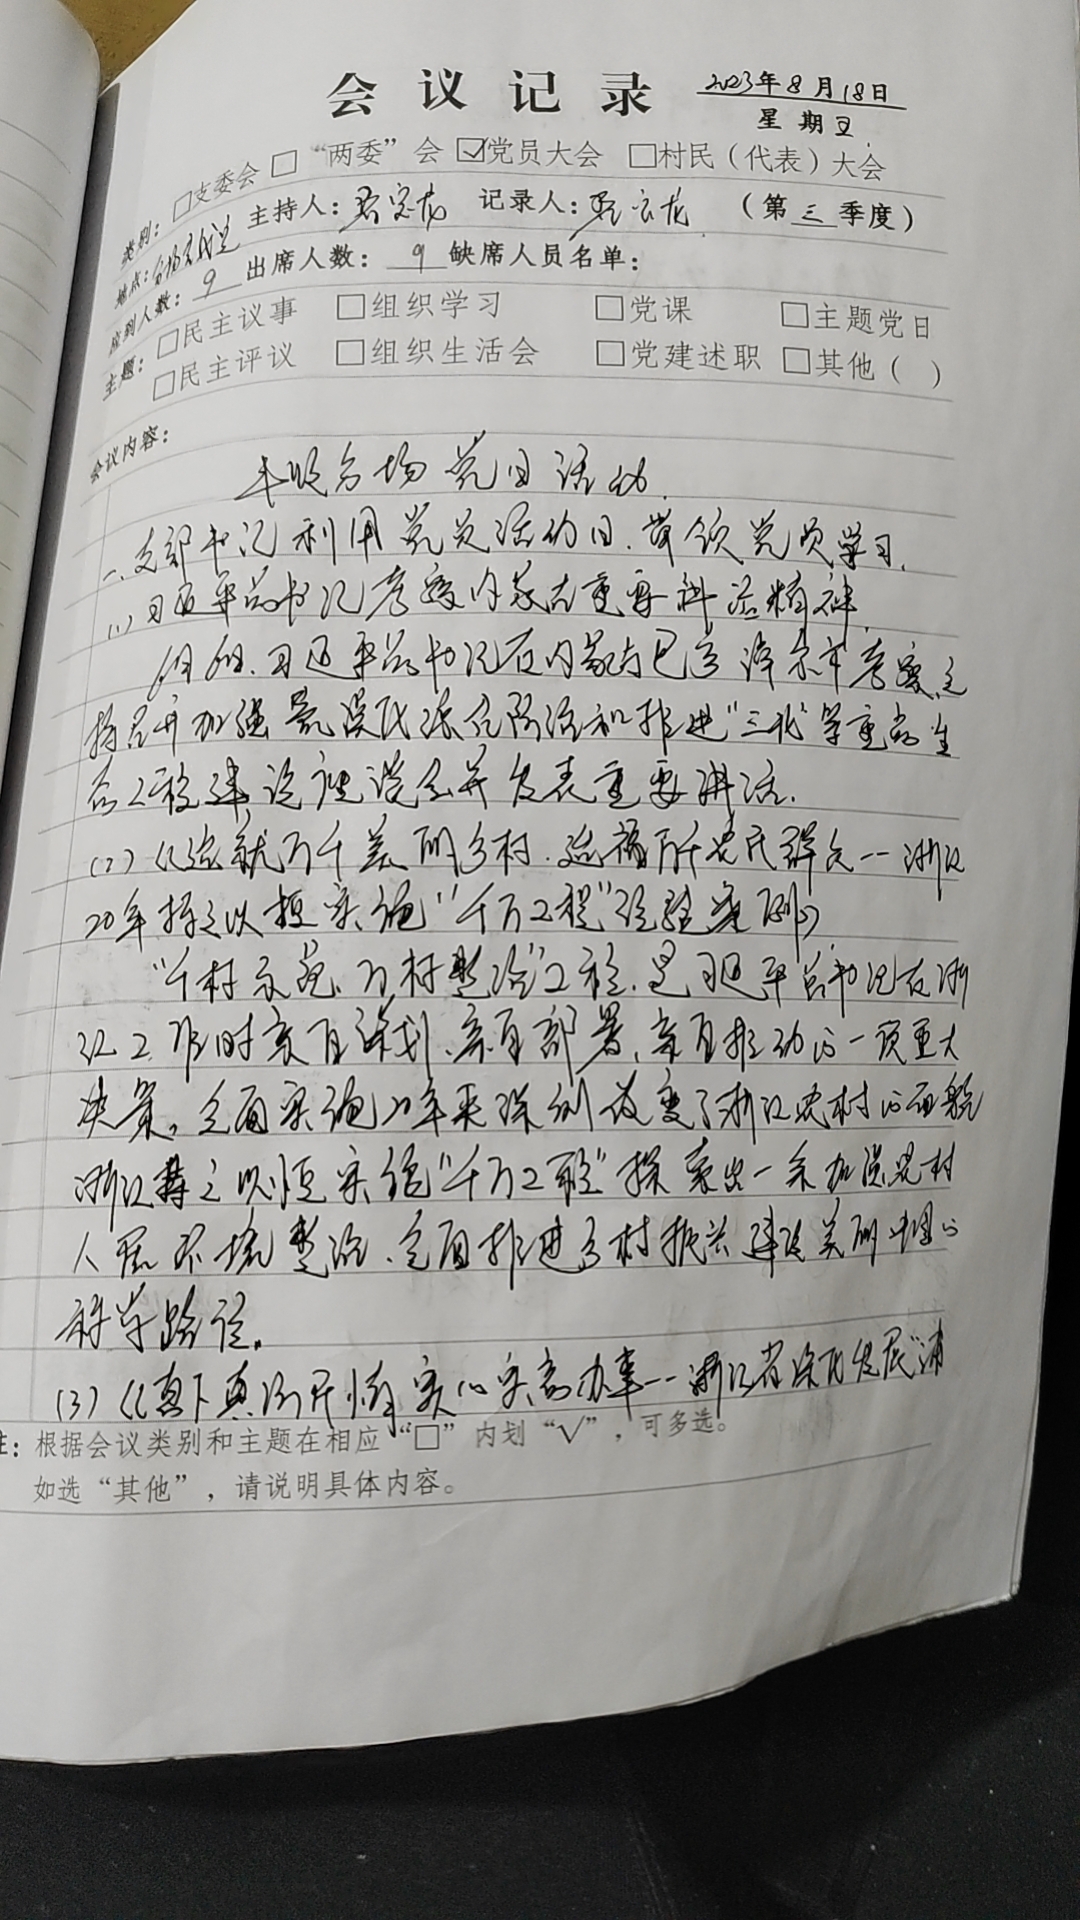 会议记录 2023年8月18日
星期五
类别：□支委会 □“两委”会 ☑党员大会 □村民（代表）大会
地点： 主持人： 记录人： （第三季度）
应到人数：9 出席人数：9 缺席人员名单：
主题：□民主议事 □组织学习 □党课 □主题党日
□民主评议 □组织生活会 □党建述职 □其他（ ）
会议内容：
丰收分场党日活动.
一、支部书记利用党员活动日.带领党员学习.
(1)习近平总书记考察内蒙古重要讲话精神.
6月6日.习近平总书记在内蒙古巴彦淖尔市考察,主
持召开加强荒漠化综合防治和推进“三北”等重点生
态工程建设座谈会并发表重要讲话.
(2)《造就万千美丽乡村.造福万千农民群众--浙江
20年持之以恒实施“千万工程”经验案例》
“千村示范、万村整治”工程.是习近平总书记在浙
江工作时亲自谋划、亲自部署、亲自推动的一项重大
决策。全面实施20年来深刻改变了浙江农村的面貌
浙江持之以恒实施“千万工程”探索出一条加强农村
人居环境整治、全面推进乡村振兴建设美丽中国的
科学路径。
(3)《真下真 实心实意办事--浙江省 发展“浦
注：根据会议类别和主题在相应“□”内划“√”，可多选。
如选“其他”，请说明具体内容。